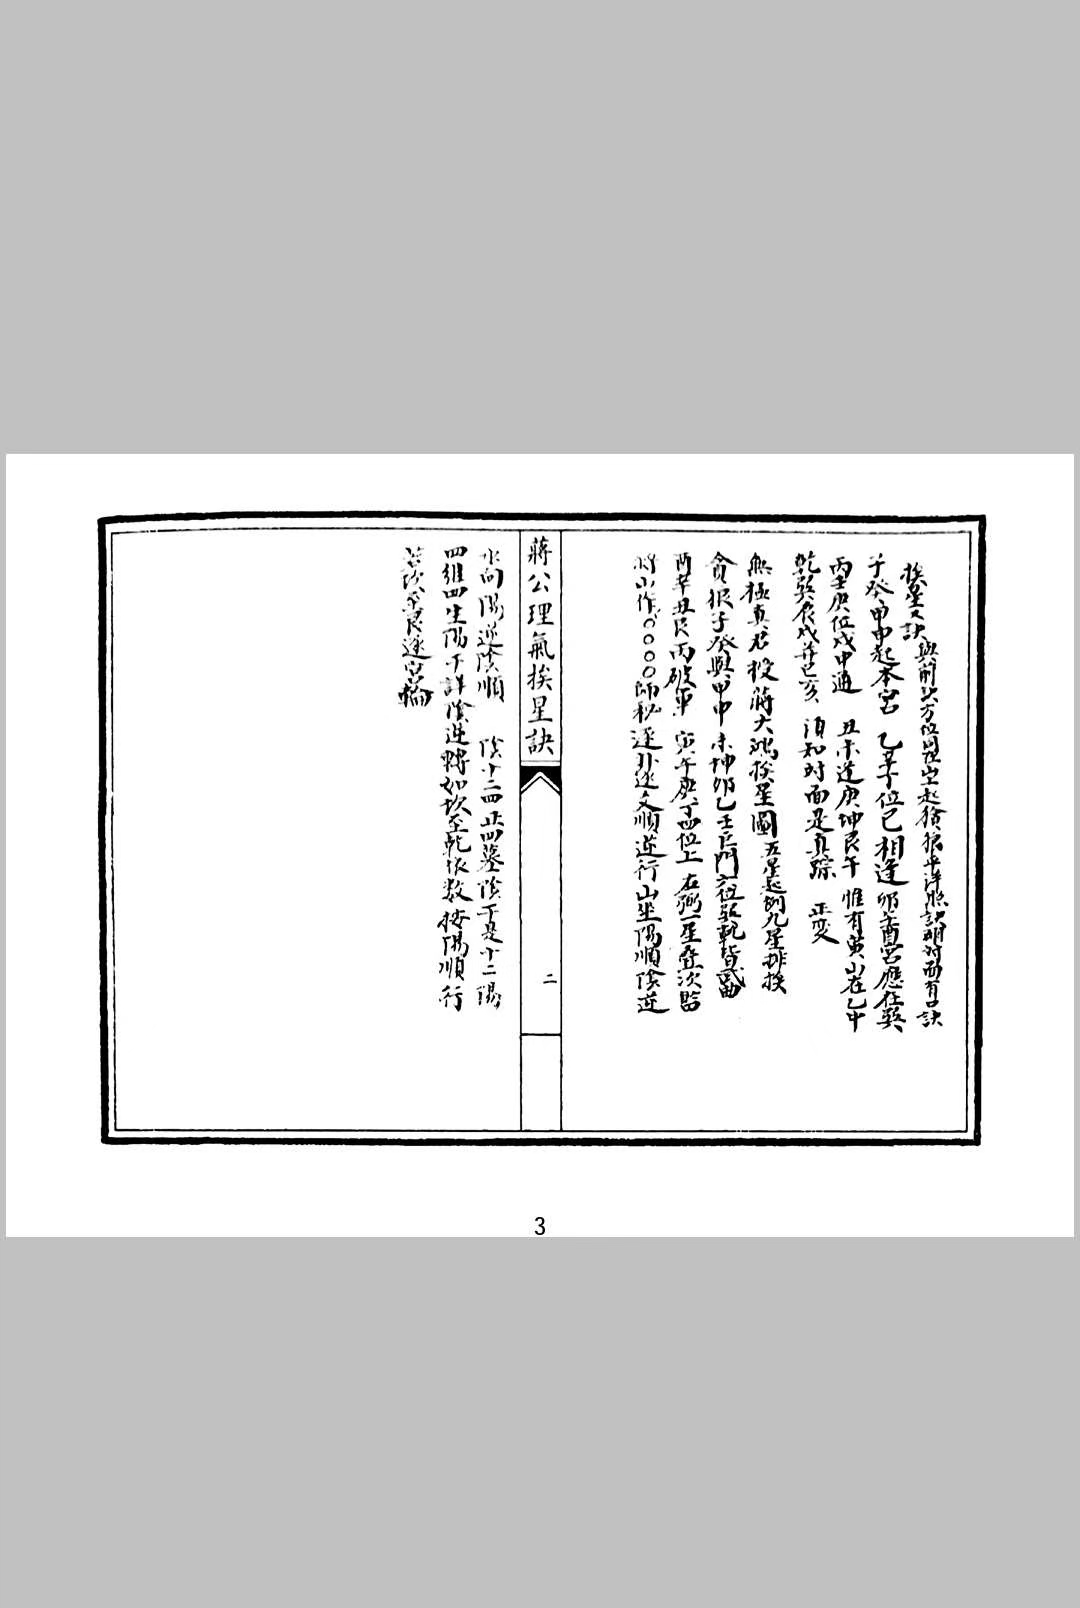 挨星又訣
與前北方位同在空起貪狼平洋照訣明对面有口訣
子癸甲申起本宮 乙辛丁位已相逢 卯辛酉宮應在巽
丙壬庚位戌申通 丑未逢庚坤艮午 惟有寅山在乙中
乾巽辰戌并巳亥 須知对面是真踪 正变
無極真君授蔣大鴻挨星圖 五星起例九星排挨
貪狼子癸與甲申 未坤卯乙壬巨門 六位巽乾皆武曲
酉辛丑艮丙破軍 寅午庚丁四位上 右弼一星登次臨
將山作〇〇〇〇師秘 逐卦逐爻順逆行 山坐陽順陰逆
蔣公理氣挨星訣
二
水向陽逆陰順 陰十二四正四墓陰干是十二陽
四維四生陽干詳 陰逆轉如坎至乾依数 按陽順行
若坎至艮逐宮輪
3